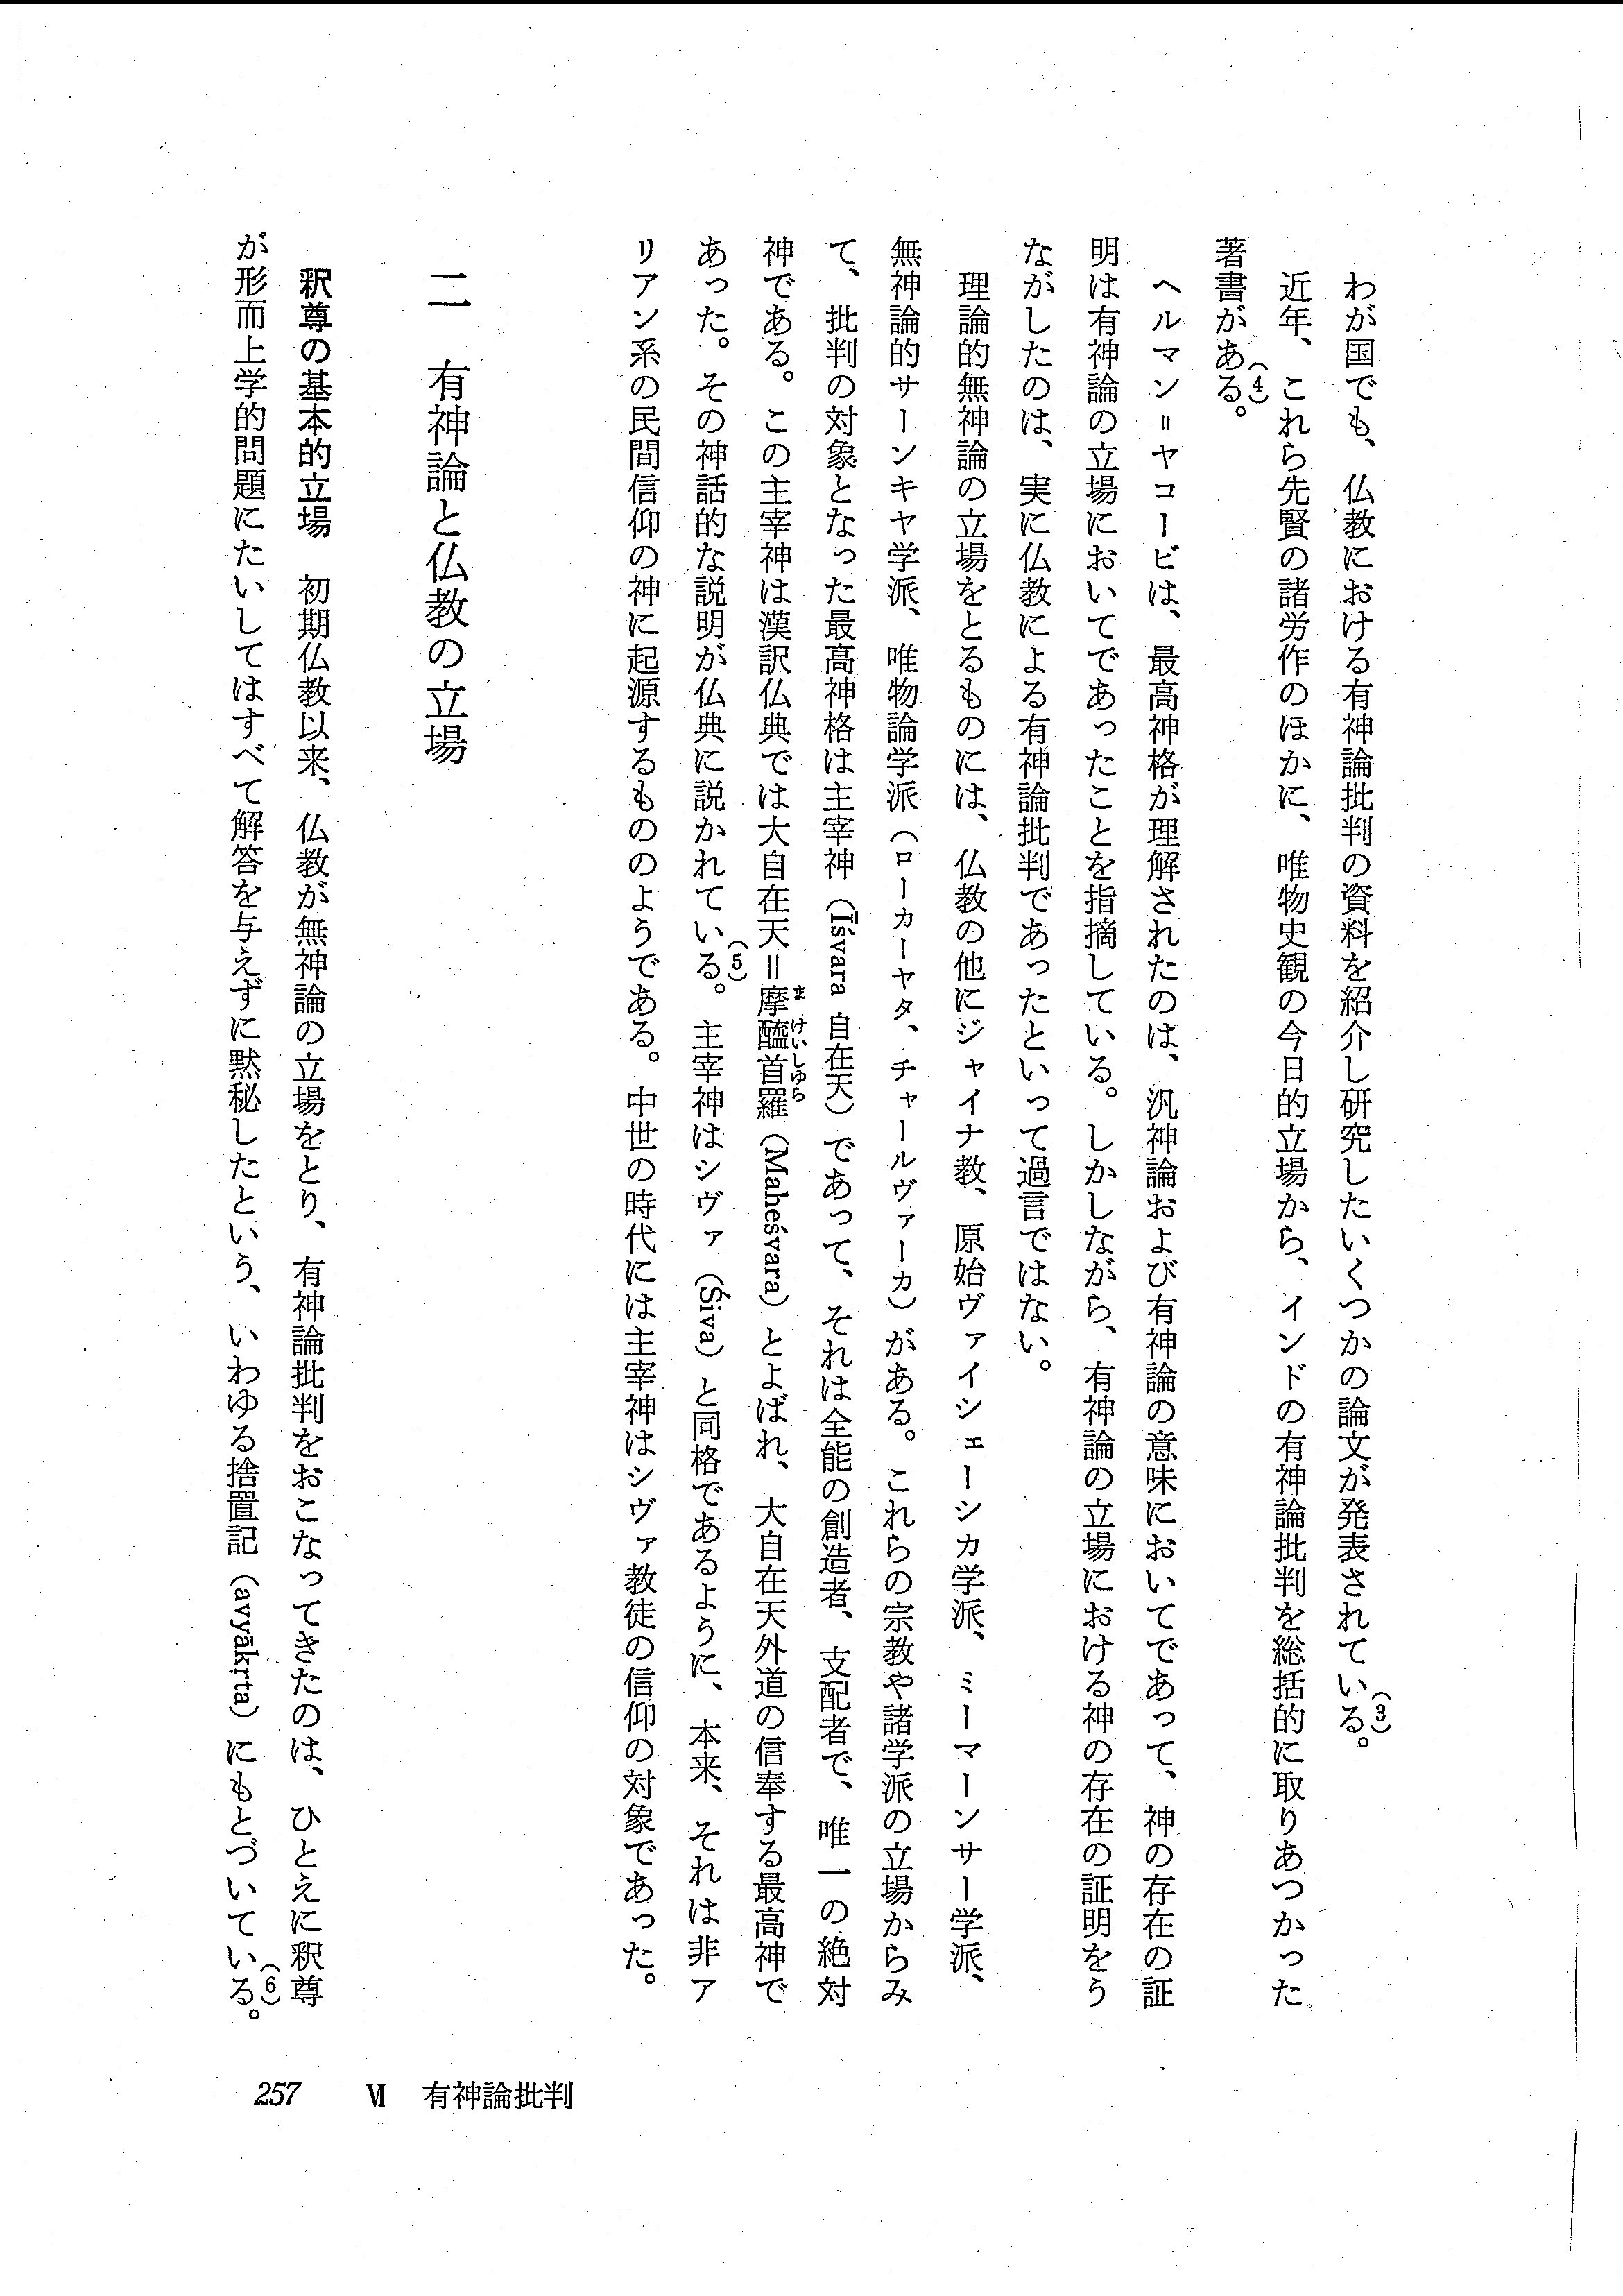 わが国でも、仏教における有神論批判の資料を紹介し研究したいくつかの論文が発表されている。(3)
近年、これら先賢の諸労作のほかに、唯物史観の今日的立場から、インドの有神論批判を総括的に取りあつかった
著書がある。(4)
ヘルマン=ヤコービは、最高神格が理解されたのは、汎神論および有神論の意味においてであって、神の存在の証
明は有神論の立場においてであったことを指摘している。しかしながら、有神論の立場における神の存在の証明をう
ながしたのは、実に仏教による有神論批判であったといって過言ではない。
理論的無神論の立場をとるものには、仏教の他にジャイナ教、原始ヴァイシェーシカ学派、ミーマーンサー学派、
無神論的サーンキヤ学派、唯物論学派（ローカーヤタ、チャールヴァーカ）がある。これらの宗教や諸学派の立場からみ
て、批判の対象となった最高神格は主宰神（Īśvara 自在天）であって、それは全能の創造者、支配者で、唯一の絶対
神である。この主宰神は漢訳仏典では大自在天=摩醯首羅（Maheśvara）とよばれ、大自在天外道の信奉する最高神で
あった。その神話的な説明が仏典に説かれている。(5)主宰神はシヴァ（Śiva）と同格であるように、本来、それは非ア
リアン系の民間信仰の神に起源するもののようである。中世の時代には主宰神はシヴァ教徒の信仰の対象であった。
二　有神論と仏教の立場
釈尊の基本的立場　初期仏教以来、仏教が無神論の立場をとり、有神論批判をおこなってきたのは、ひとえに釈尊
が形而上学的問題にたいしてはすべて解答を与えずに黙秘したという、いわゆる捨置記（avyākṛta）にもとづいている。(6)
257　Ⅵ　有神論批判